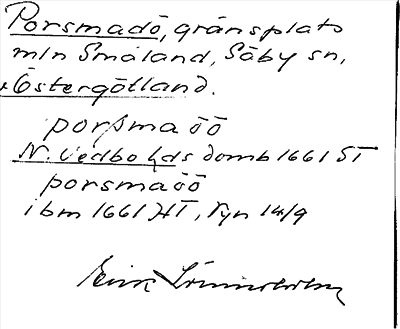 Porsmadö, gränsplats
mln Småland, Säby sn,
Östergötland.
porsma öö
N. Vedbo hds domb 1661 ST
porsmaöö
ibm 1661 HT, Ryn 14/9